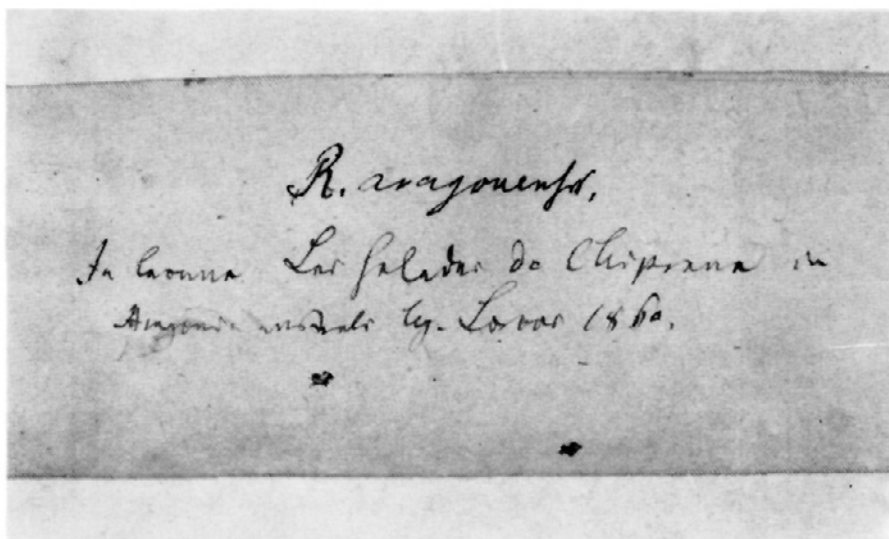 R. aragonensis.
In lacuna Las Saladas de Chiprana in
Aragonia australi lg. Loscos 1860.